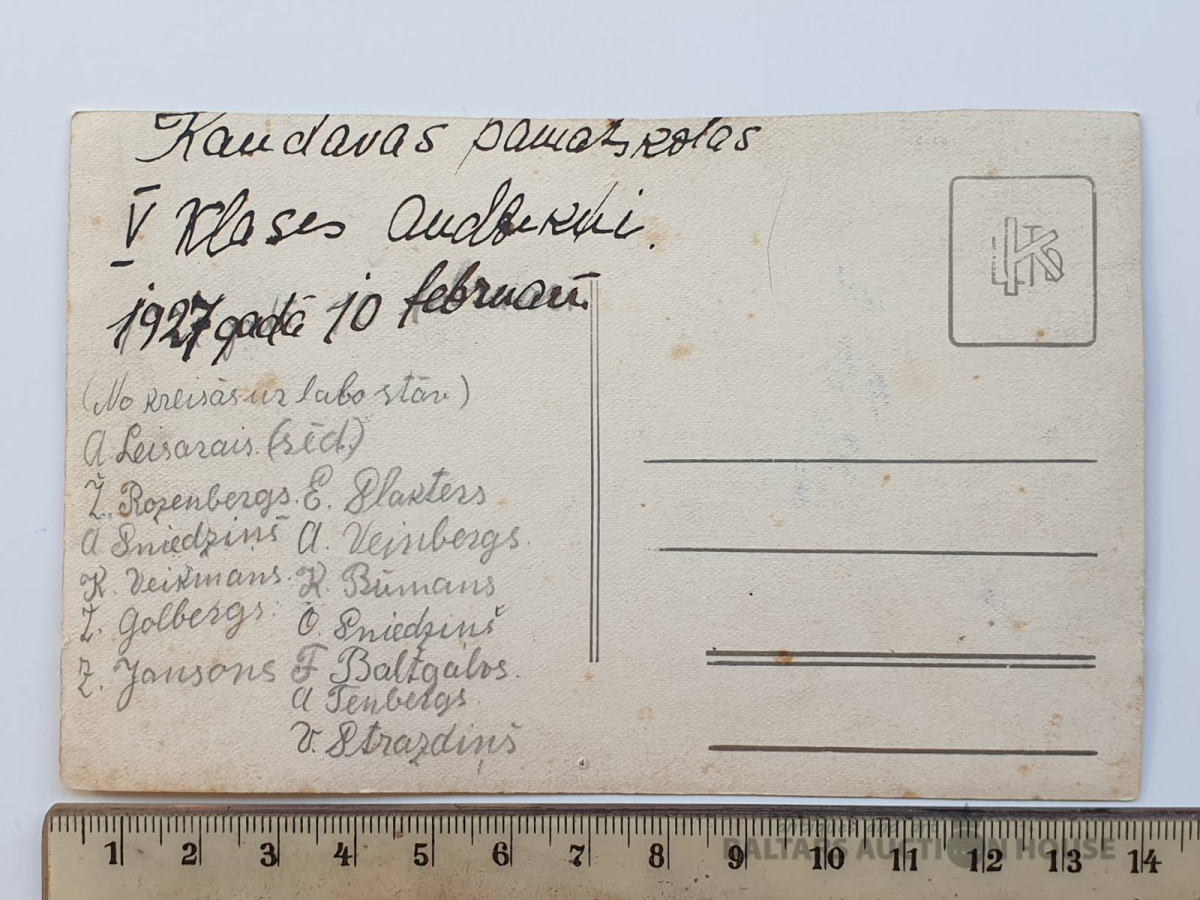 Kandavas pamatskolas
V klases audzēkņi.
1927 gadā 10 februarī.
(No kreisās uz labo stāv)
A. Leisarais. (sēd.)
Ž. Rozenbergs. E. Slakters
A Sniedziņš A. Veinbergs.
K. Veikmans. K. Būmans
Ž. Golbergs. O. Sniedziņš
Z. Jansons F Baltgalvs.
A Tenbergs.
V. Strazdiņš
1 2 3 4 5 6 7 8 9 10 11 12 13 14
BALTARS AUCTION HOUSE